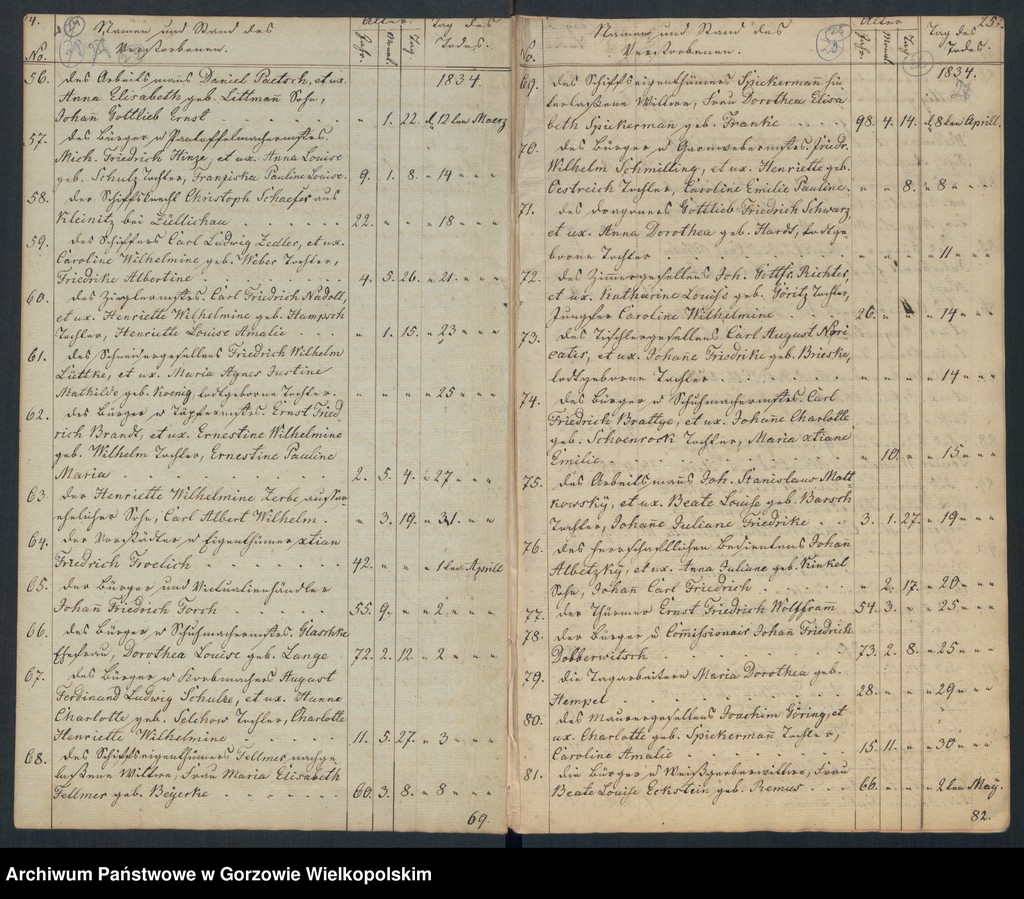 24.
Namen und Stand des
Verstorbenen.
No.
Alter.
Jahr.
Monat
Tag.
Tag des
Todes.
1834.
56. des Arbeitsmans Daniel Paetsch, et ux.
Anna Elisabeth geb. Littman Sohn,
Johan Gottlieb Ernst " 1. 22. d. 12ten Maerz
57. des Bürger u Pantoffelmachermstrs.
Mich. Friedrich Hinze, et ux. Anna Louise
geb. Schulz Tochter, Franziska Pauline Louise. 9. 1. 8. " 14 " " "
58. der Schiffsknecht Christoph Schaefer aus
Kleinitz bei Züllichau 22. " " " 18 " " "
59. des Schiffers Carl Ludwig Zedler, et ux.
Caroline Wilhelmine geb. Weber Tochter,
Friedrike Albertine 4. 5. 26. " 21. " " "
60. des Zieglermstrs. Carl Friedrich Nadoll,
et ux. Henriette Wilhelmine geb. Hampsch
Tochter, Henriette Louise Amalie " 1. 15. " 23 " " "
61. des Schneidergesellens Friedrich Wilhelm
Lüttke, et ux. Maria Agnes Justine
Mathilde geb. Koenig, todtgeborne Tochter. " " " " 25 " " "
62. des Bürger u Töpfermstrs. Ernst Fried
rich Brandt, et ux. Ernestine Wilhelmine
geb. Wilhelm Tochter, Ernestine Pauline
Maria 2. 5. 4. " 27 " " "
63. der Henriette Wilhelmine Zerbe außer
ehelicher Sohn, Carl Albert Wilhelm. " 3. 19. " 31. " " "
64. der Vorstädter u Eigenthümer Xtian
Friedrich Froelich 42. " " " 1ten Aprill
65. der Bürger und Victualienhändler
Johan Friedrich Torch 55. 9. " " 2 " " "
66. des Bürger u Schuhmachermstrs. Glaschke
Ehefrau, Dorothea Louise geb. Lange 72. 2. 12. " 2 " " "
67. des Bürger u Korbmachers August
Ferdinand Ludwig Schulze, et ux. Hanne
Charlotte geb. Selchow Tochter, Charlotte
Henriette Wilhelmine 11. 5. 27. " 3 " " "
68. des Schiffseigenthümers Fellmer nachge
laßene Wittwe, Frau Maria Elisabeth
Fellmer geb. Beyerke 60. 3. 8. " 8 " " "
69.
25.
Namen und Stand des
Verstorbenen.
No.
Alter
Jahr.
Monat
Tag.
Tag des
Todes.
1834.
69. des Schiffseigenthümers Spickerman hin
terlaßene Wittwe, Frau Dorothea Elisa
beth Spickerman geb. Franke 98. 4. 14. d. 8ten Aprill.
70. des Bürger u Garnwebermstrs. Friedr.
Wilhelm Schmilling, et ux. Henriette geb.
Oestreich Tochter, Caroline Emilie Pauline. " " 8. " 8 " " "
71. des Dragoners Gottlieb Friedrich Schwarz,
et ux. Anna Dorothea geb. Hardt, todtge
borne Tochter " " " " 11 " " "
72. des Zimergesellens Joh. Gottfr. Richter,
et ux. Katharine Louise geb. Göritz Tochter,
Jungfer Caroline Wilhelmine 26. " " " 14 " " "
73. des Tischlergesellens Carl August
et ux. Johane Friedrike geb. Brieske,
todtgeborne Tochter " " " " 14 " " "
74. des Bürger u Schuhmachermstrs. Carl
Friedrich Brattge, et ux. Johane Charlotte
geb. Schoenrock Tochter, Maria Xtiane
Emilie " 10. " " 15 " " "
75. des Arbeitsmans Joh. Stanislaus Matt
kowsky, et ux. Beate Louise geb. Barsch
Tochter, Johane Juliane Friedrike 3. 1. 27. " 19 " " "
76. des herrschaftlichen Bedientens Johan
Albetzky, et ux. Anna Juliane geb. Kinkel
Sohn, Johan Carl Friedrich " 2. 17. " 20 " " "
77. der Thürmer Ernst Friedrich Wolffram 54. 3. " " 25 " " "
78. der Bürger u Comissionair Johan Friedrich
Dobberwitsch 73. 2. 8. " 25 " " "
79. die Tagarbeitern Maria Dorothea geb.
Hempel 28. " " " 29 " " "
80. des Maurergesellens Joachim Göring, et
ux. Charlotte geb. Spickerman Tochter,
Caroline Amalie 15. 11. " " 30 " " "
81. die Bürger u Weißgerberwittwe, Frau
Beate Louise Eckstein geb. Remus 66. " " " 2ten May.
82.
Archiwum Państwowe w Gorzowie Wielkopolskim